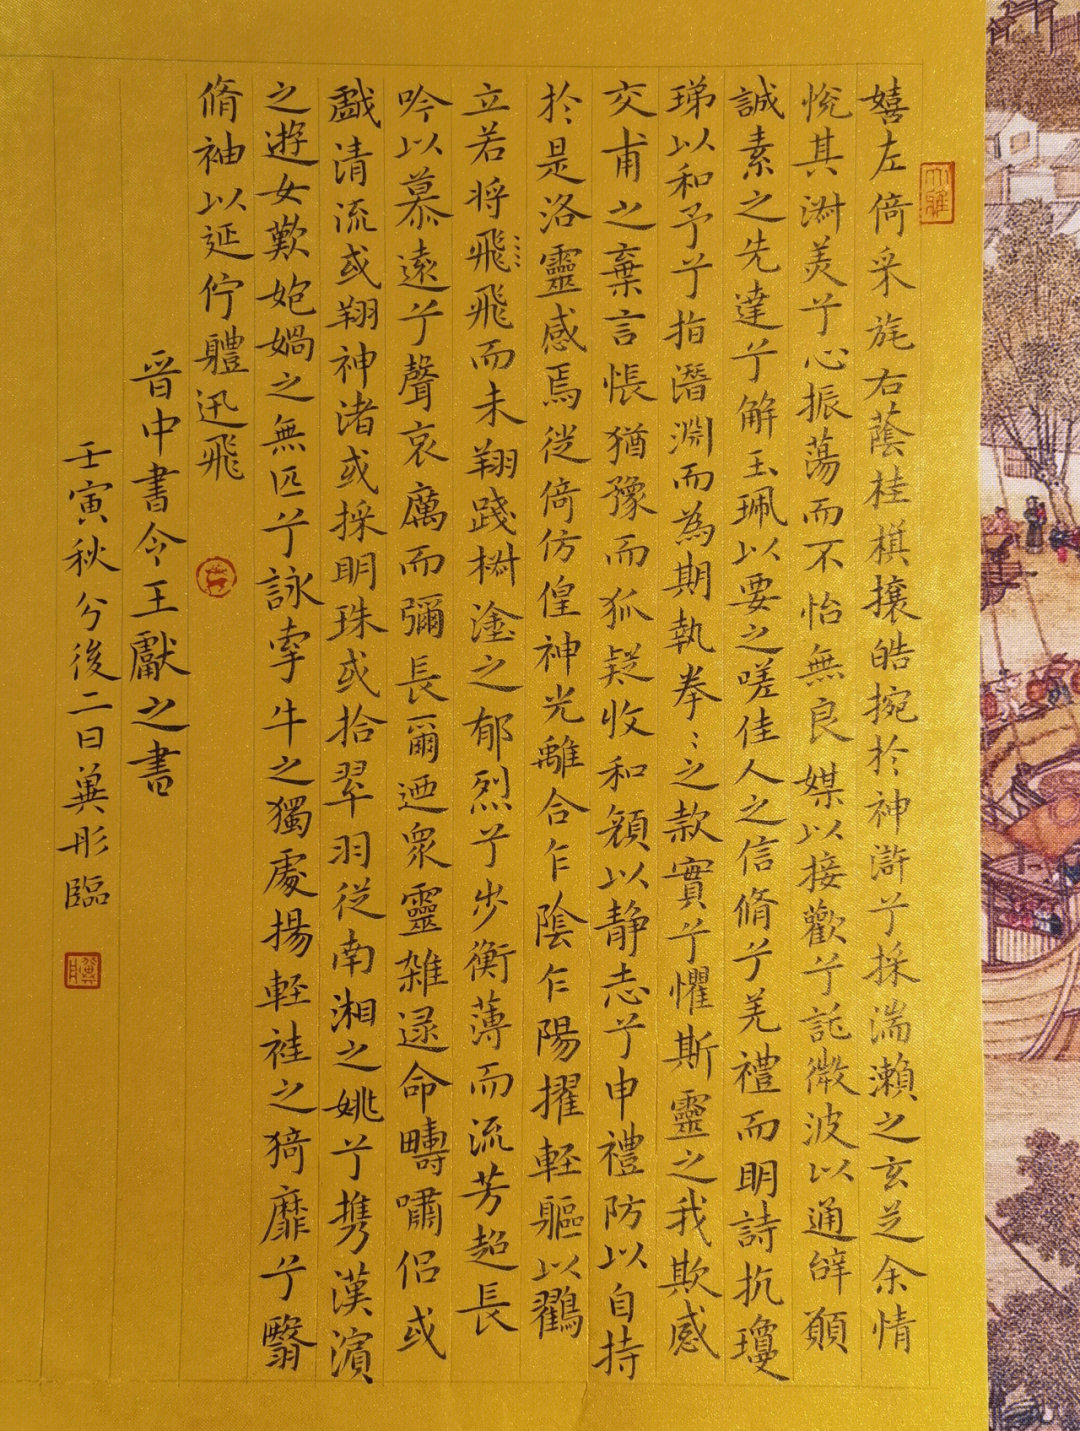 嬉左倚采旄右蔭桂棋攘皓捥於神滸兮採湍瀨之玄芝余情
悅其淋美兮心振蕩而不怡無良媒以接歡兮託微波以通辭願
誠素之先達兮解玉珮以要之嗟佳人之信脩兮羌禮而明詩抗瓊
珶以和予兮指潛淵而為期執拳〻之款實兮懼斯靈之我欺感
交甫之棄言悵猶豫而狐疑收和顏以静志兮申禮防以自持
於是洛靈感焉徙倚仿偟神光離合乍陰乍陽擢軽軀以鸖
立若将飛飛而未翔踐椒塗之郁烈兮步衡薄而流芳超長
吟以慕遠兮聲哀厲而彌長爾迺衆靈雑遝命疇嘯侶或
戲清流或翔神渚或採明珠或拾翠羽従南湘之姚兮携漢濱
之遊女歎炮媧之無匹兮詠牽牛之獨處揚軽袿之猗靡兮翳
脩袖以延佇軆迅飛
晋中書令王獻之書
壬寅秋分後二日冀彤臨
大雅